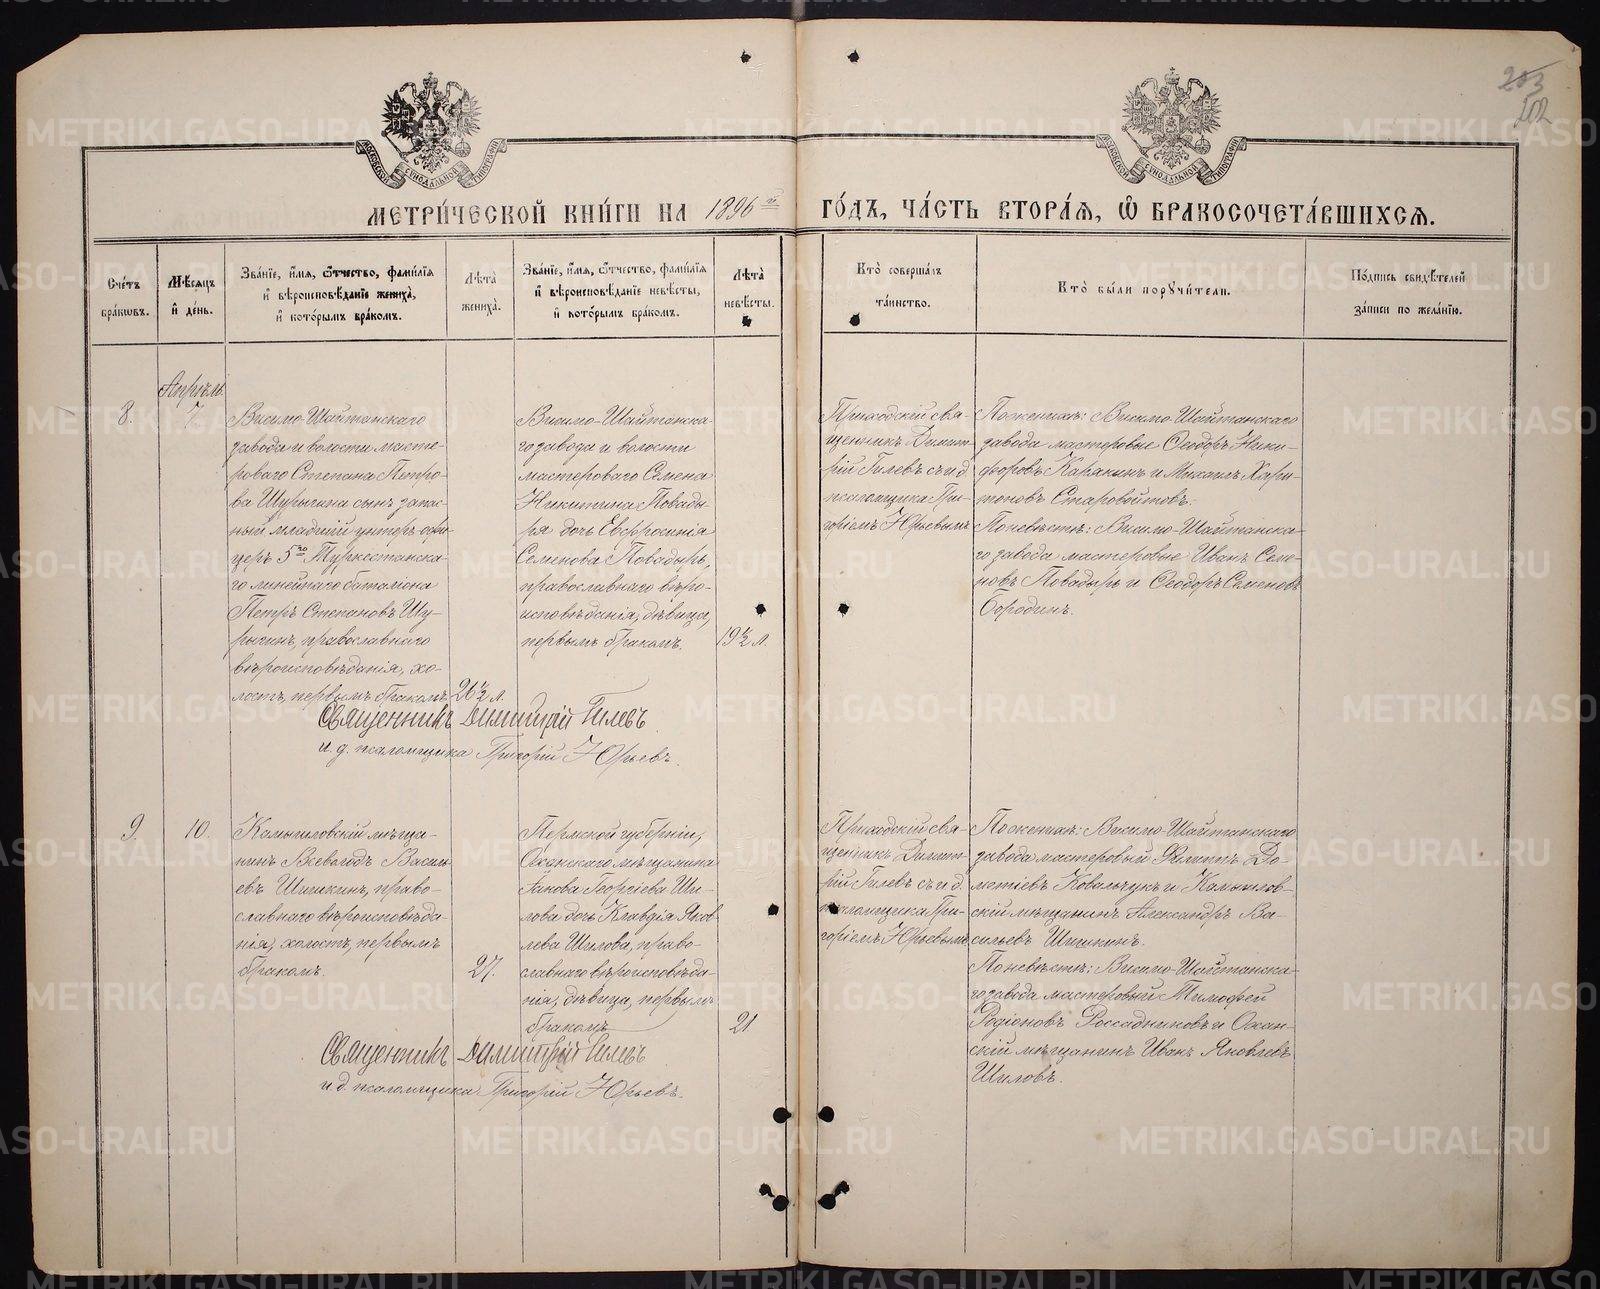 203
202
МОСКОВСКОЙ СѴНОДАЛЬНОЙ ТИПОГРАФІИ
МОСКОВСКОЙ СѴНОДАЛЬНОЙ ТИПОГРАФІИ
МЕТРИ́ЧЕСКОЙ КНИ́ГИ НА 1896й ГО́ДЪ, ЧА́СТЬ ВТОРА́Ѧ, Ѡ҆ БРАКОСОЧЕТА́ВШИХСѦ.
Сче́тъ бра́кѡвъ.
Мѣ́сѧцъ и҆ де́нь.
Зва́нїе, и҆́мѧ, ѻ҆́тчество, фами́лїѧ
и҆ вѣроисповѣ́данїе жениха̀,
и҆ кото́рымъ бра́комъ.
Лѣта̀
жениха̀.
Зва́нїе, и҆́мѧ, ѻ҆́тчество, фами́лїѧ
и҆ вѣроисповѣ́данїе невѣ́сты,
и҆ кото́рымъ бра́комъ.
Лѣта̀
невѣ́сты.
Кто̀ соверша́лъ
та́инство.
Кто̀ бы́ли порꙋчи́тели.
По́дпись свидѣ́телей
за́писи по жела́нїю.
Апрѣль
8.
7
Висимо-Шайтанскаго
завода и волости масте-
роваго Степана Петро-
ва Шурыгина сынъ запас-
ный младшій унтеръ офи-
церъ 5го Туркестанска-
го линейнаго баталіона
Петръ Степановъ Шу-
рыгинъ, православнаго
вѣроисповѣданія, хо-
лостъ, первымъ бракомъ.
26½ л.
Висимо-Шайтанска-
го завода и волости
мастероваго Семена
Никитина Повады-
ря дочь Евфросинія
Семенова Повадырь,
православнаго вѣро-
исповѣданія, дѣвица,
первымъ бракомъ.
19½ л.
Приходскій свя-
щенникъ Димит-
рій Гилевъ съ и.д.
псаломщика Гри-
горіемъ Юрьевымъ
По женихѣ: Висимо-Шайтанскаго
завода мастеровые Ѳеодоръ Ники-
форовъ Карякинъ и Михаилъ Хари-
тоновъ Старовойтовъ.
По невѣстѣ: Висимо-Шайтанска-
го завода мастеровые Иванъ Семе-
новъ Повадырь и Ѳеодоръ Семеновъ
Бородинъ.
Священникъ Димитрій Гилевъ
и. д. псаломщика Григорій Юрьевъ.
9.
10.
Камышловскій мѣща-
нинъ Всеволодъ Василь-
евъ Шишкинъ, право-
славнаго вѣроисповѣда-
нія, холостъ, первымъ
бракомъ.
27.
Пермской губерніи,
Оханскаго мѣщанина
Іакова Георгіева Ши-
лова дочь Клавдія Яков-
лева Шилова, право-
славнаго вѣроисповѣда-
нія, дѣвица, первымъ
бракомъ
21
Приходскій свя-
щенникъ Димит-
рій Гилевъ съ и.д.
псаломщика Гри-
горіемъ Юрьевымъ
По женихѣ: Висимо-Шайтанскаго
завода мастеровый Филиппъ До-
метіевъ Ковальчукъ и Камышлов-
скій мѣщанинъ Александръ Ва-
сильевъ Шишкинъ.
По невѣстѣ: Висимо-Шайтанска-
го завода мастеровый Тимофей
Родіоновъ Россадниковъ и Охан-
скій мѣщанинъ Иванъ Яковлевъ
Шиловъ.
Священникъ Димитрій Гилевъ
и. д. псаломщика Григорій Юрьевъ.
METRIKI.GASO-URAL.RU